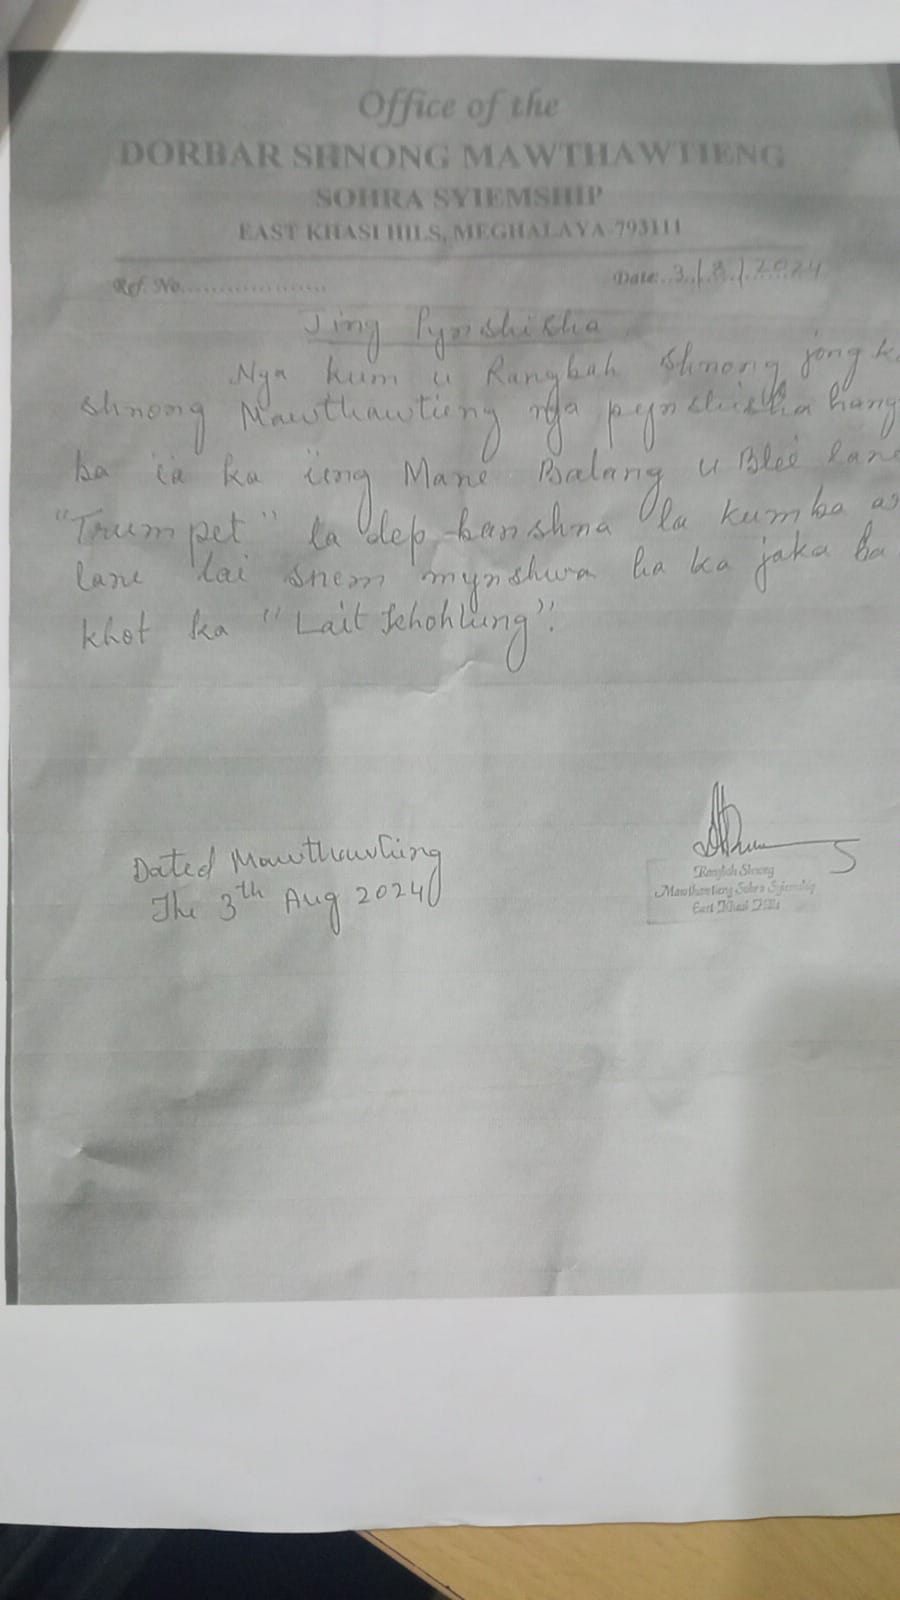 Office of the
DORBAR SHNONG MAWTHAWTIENG
SOHRA SYIEMSHIP
EAST KHASI HILS, MEGHALAYA-793111
Ref. No................... Date: 3/8/2024
Jing Pynshisha
Nga kum u Rangbah Shnong jong k
shnong Mawthawtieng nga pynshisha hang
ba ia ka iing Mane Balang u Blei lane
"Trumpet" la dep ban shna la kumba ar
lane lai snem mynshwa ha ka jaka ba
khot ka "Lait
Dated Mawthawtieng
The 3th Aug 2024
Rangbah Shnong
Mawthawtieng Sohra Syiemship
East Khasi Hills